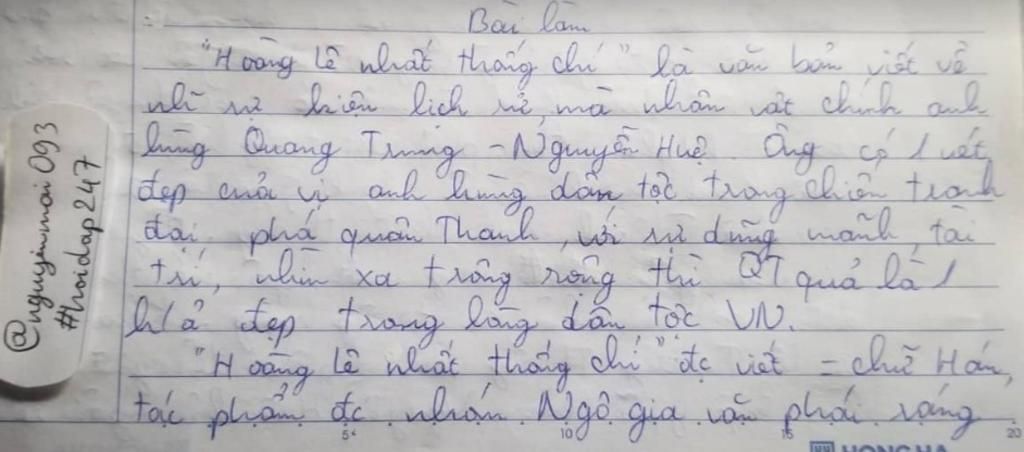 Bài làm
"Hoàng Lê nhất thống chí" là văn bản viết về
sự kiện lịch sử, mà nhân vật chính anh
hùng Quang Trung - Nguyễn Huệ. Ông có 1 vét
đẹp của vị anh hùng dân tộc trong chiến tranh
đại phá quân Thanh, với sự dũng mãnh, tài
trí, nhìn xa trông rộng thì QT quả là 1
h/ả đẹp trong lòng dân tộc VN.
"Hoàng Lê nhất thống chí" đc viết = chữ Hán,
tác phẩm đc nhóm Ngô gia văn phái sáng
@nguyenmai093
#hoidap247
5
10
15
20
HONG HA